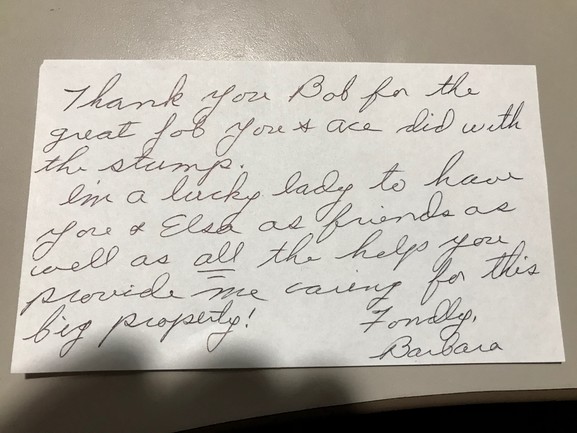 Thank you Bob for the
great job you & ace did with
the stump.
I'm a lucky lady to have
you & Elsa as friends as
well as all the help you
provide me caring for this
big property!
Fondly,
Barbara